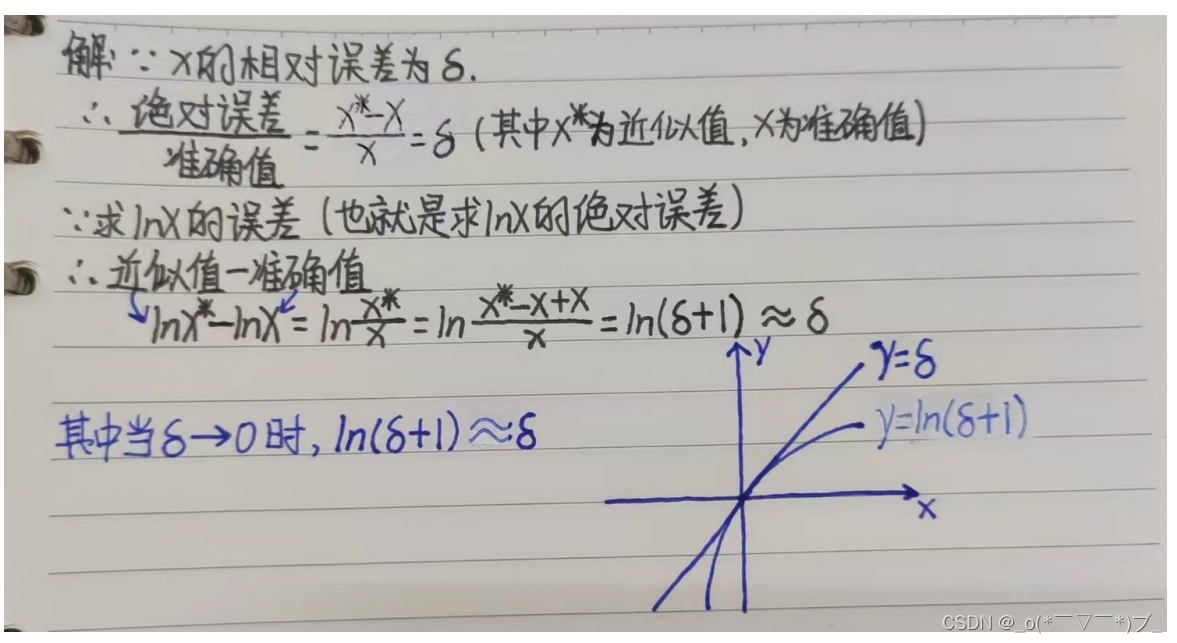 解: ∵ x的相对误差为 δ.
∴ 绝对误差/准确值 = (x*-x)/x = δ (其中x*为近似值, x为准确值)
∵求lnx的误差 (也就是求lnx的绝对误差)
∴ 近似值-准确值
lnx*-lnx = ln x*/x = ln (x*-x+x)/x = ln(δ+1) ≈ δ
y
y=δ
其中当δ→0时, ln(δ+1) ≈ δ
y=ln(δ+1)
x
CSDN @_o(*￣▽￣*)ブ_